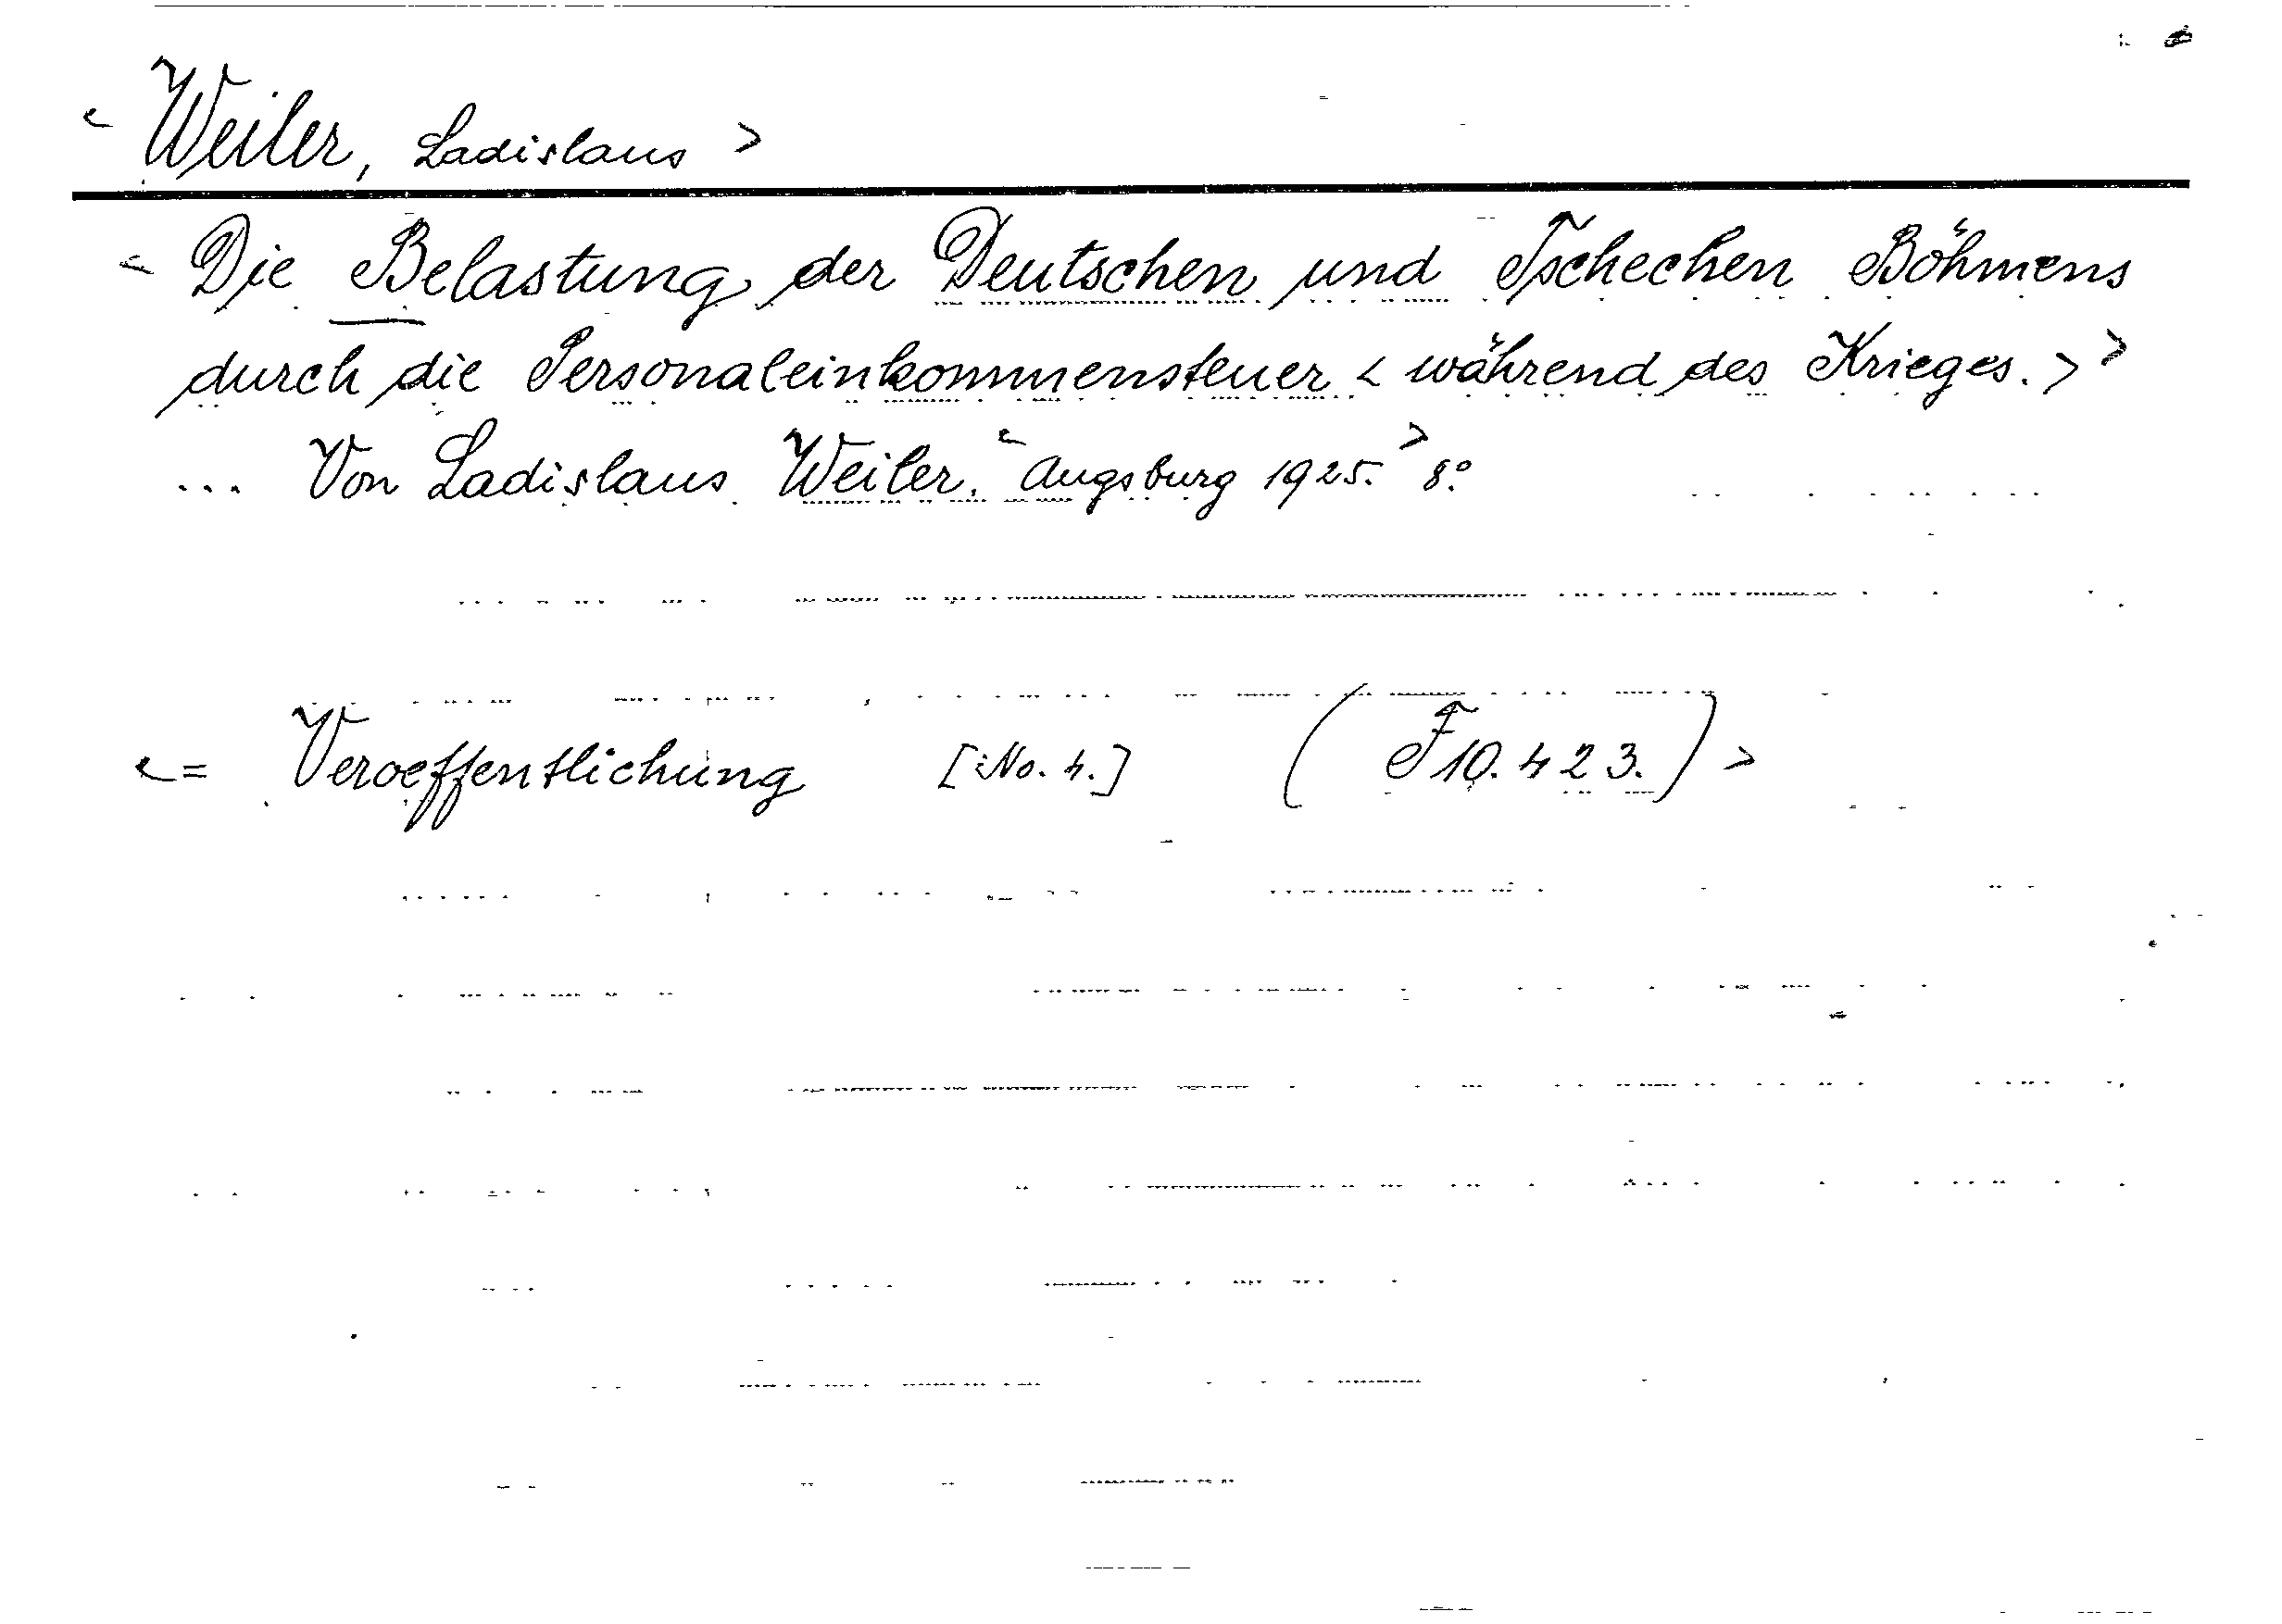 < Weiler, Ladislaus >
< Die Belastung der Deutschen und Tschechen Böhmens
durch die Personaleinkommensteuer < während des Krieges. > >
... Von Ladislaus Weiler. < Augsburg 1925. > 8º.
< = Veroeffentlichung [No. 4.] ( F 10. 423. ) >